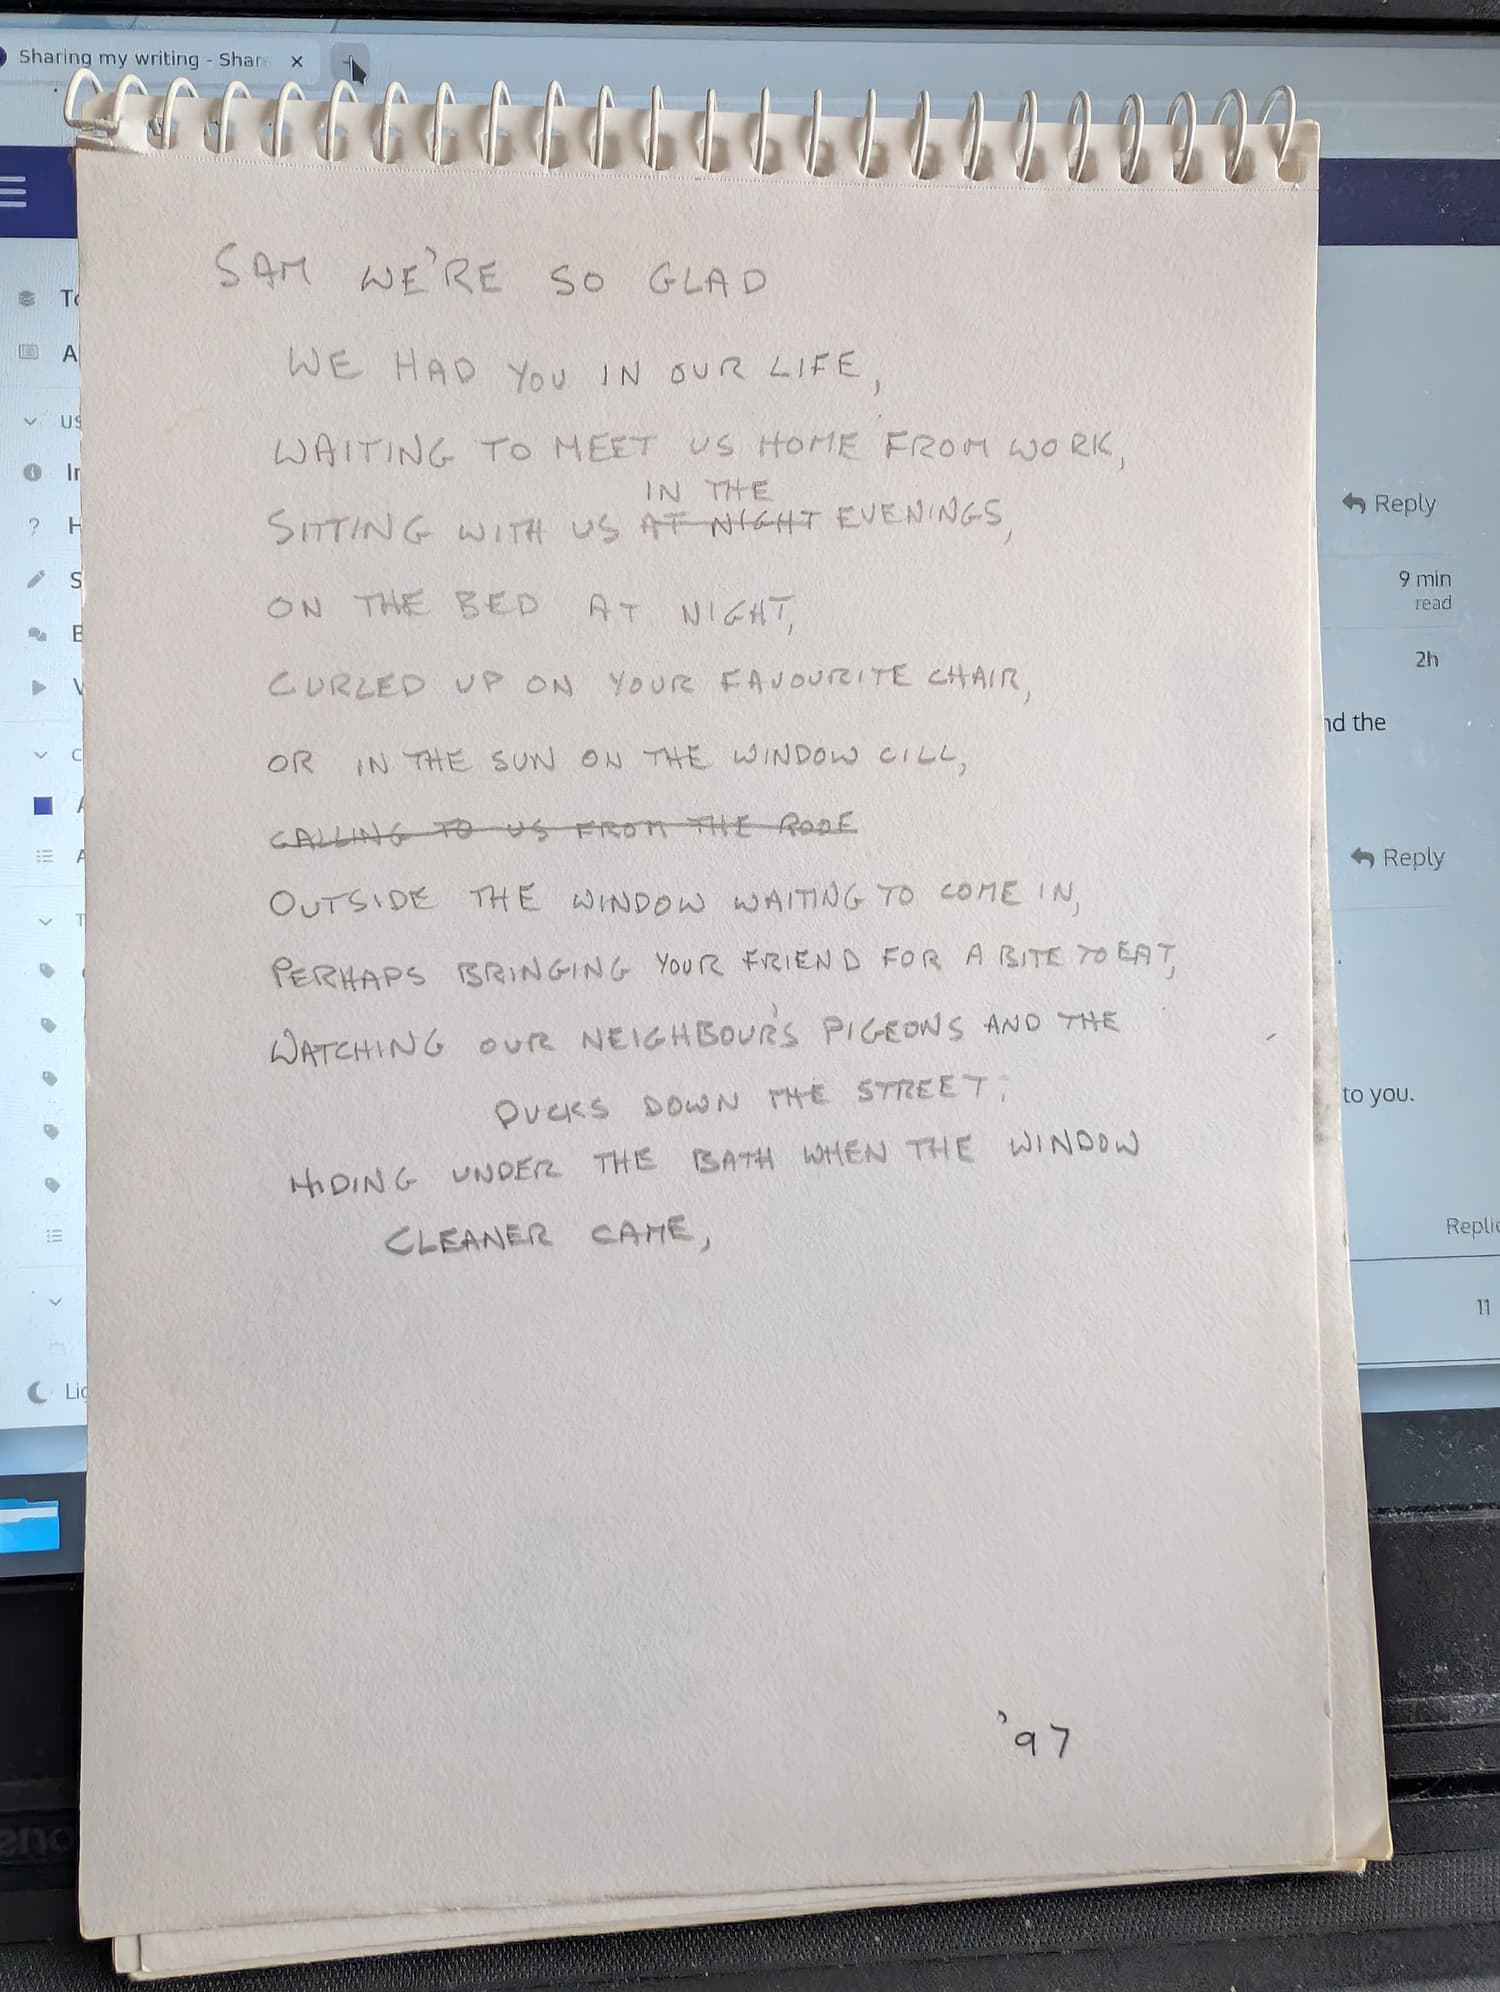 Sharing my writing - Shar
SAM WE'RE SO GLAD
WE HAD YOU IN OUR LIFE,
WAITING TO MEET US HOME FROM WORK,
IN THE
SITTING WITH US AT NIGHT EVENINGS,
ON THE BED AT NIGHT,
CURLED UP ON YOUR FAVOURITE CHAIR,
OR IN THE SUN ON THE WINDOW CILL,
CALLING TO US FROM THE ROOF
OUTSIDE THE WINDOW WAITING TO COME IN,
PERHAPS BRINGING YOUR FRIEND FOR A BITE TO EAT,
WATCHING OUR NEIGHBOUR'S PIGEONS AND THE
DUCKS DOWN THE STREET;
HIDING UNDER THE BATH WHEN THE WINDOW
CLEANER CAME,
'97
Reply
9 min
read
2h
nd the
Reply
to you.
Replie
11